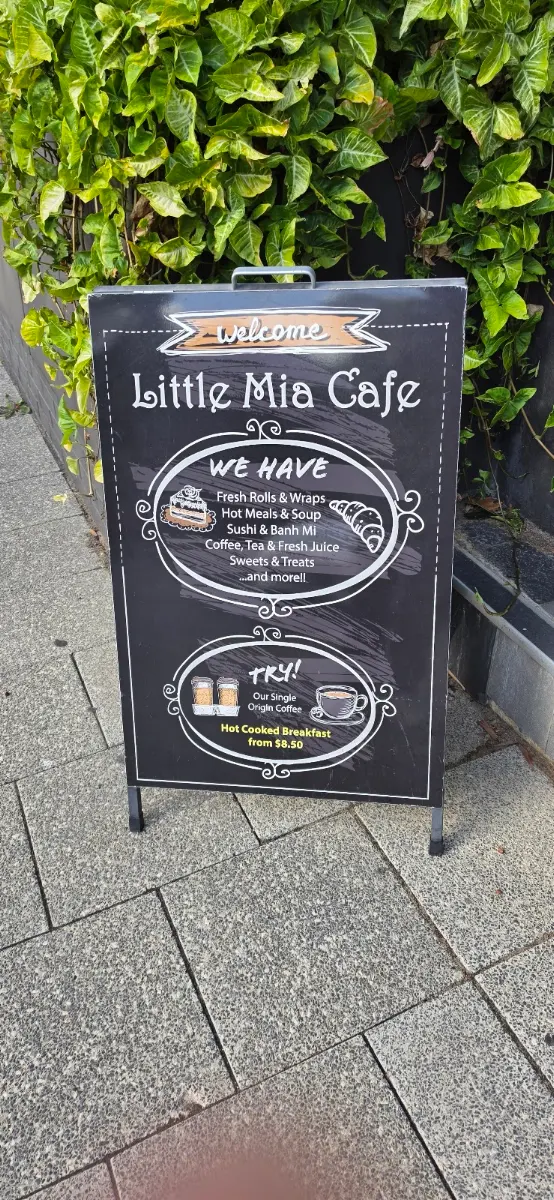 welcome
Little Mia Cafe
WE HAVE
Fresh Rolls & Wraps
Hot Meals & Soup
Sushi & Banh Mi
Coffee, Tea & Fresh Juice
Sweets & Treats
...and more!!
TRY!
Our Single
Origin Coffee
Hot Cooked Breakfast
from $8.50